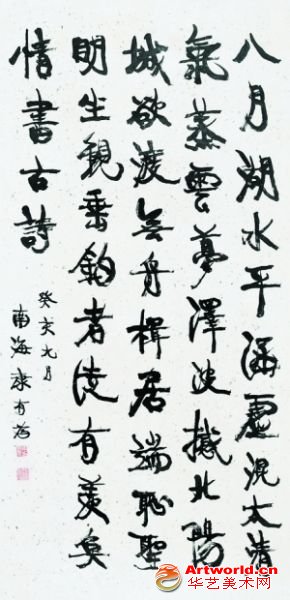 八月湖水平涵虛混太清
氣蒸雲夢澤波撼北陽
城欲渡無舟楫居端恥聖
明坐觀垂釣者徒有羨魚
情書古詩
癸亥九月
南海康有為
Artworld.cn
华艺美术网